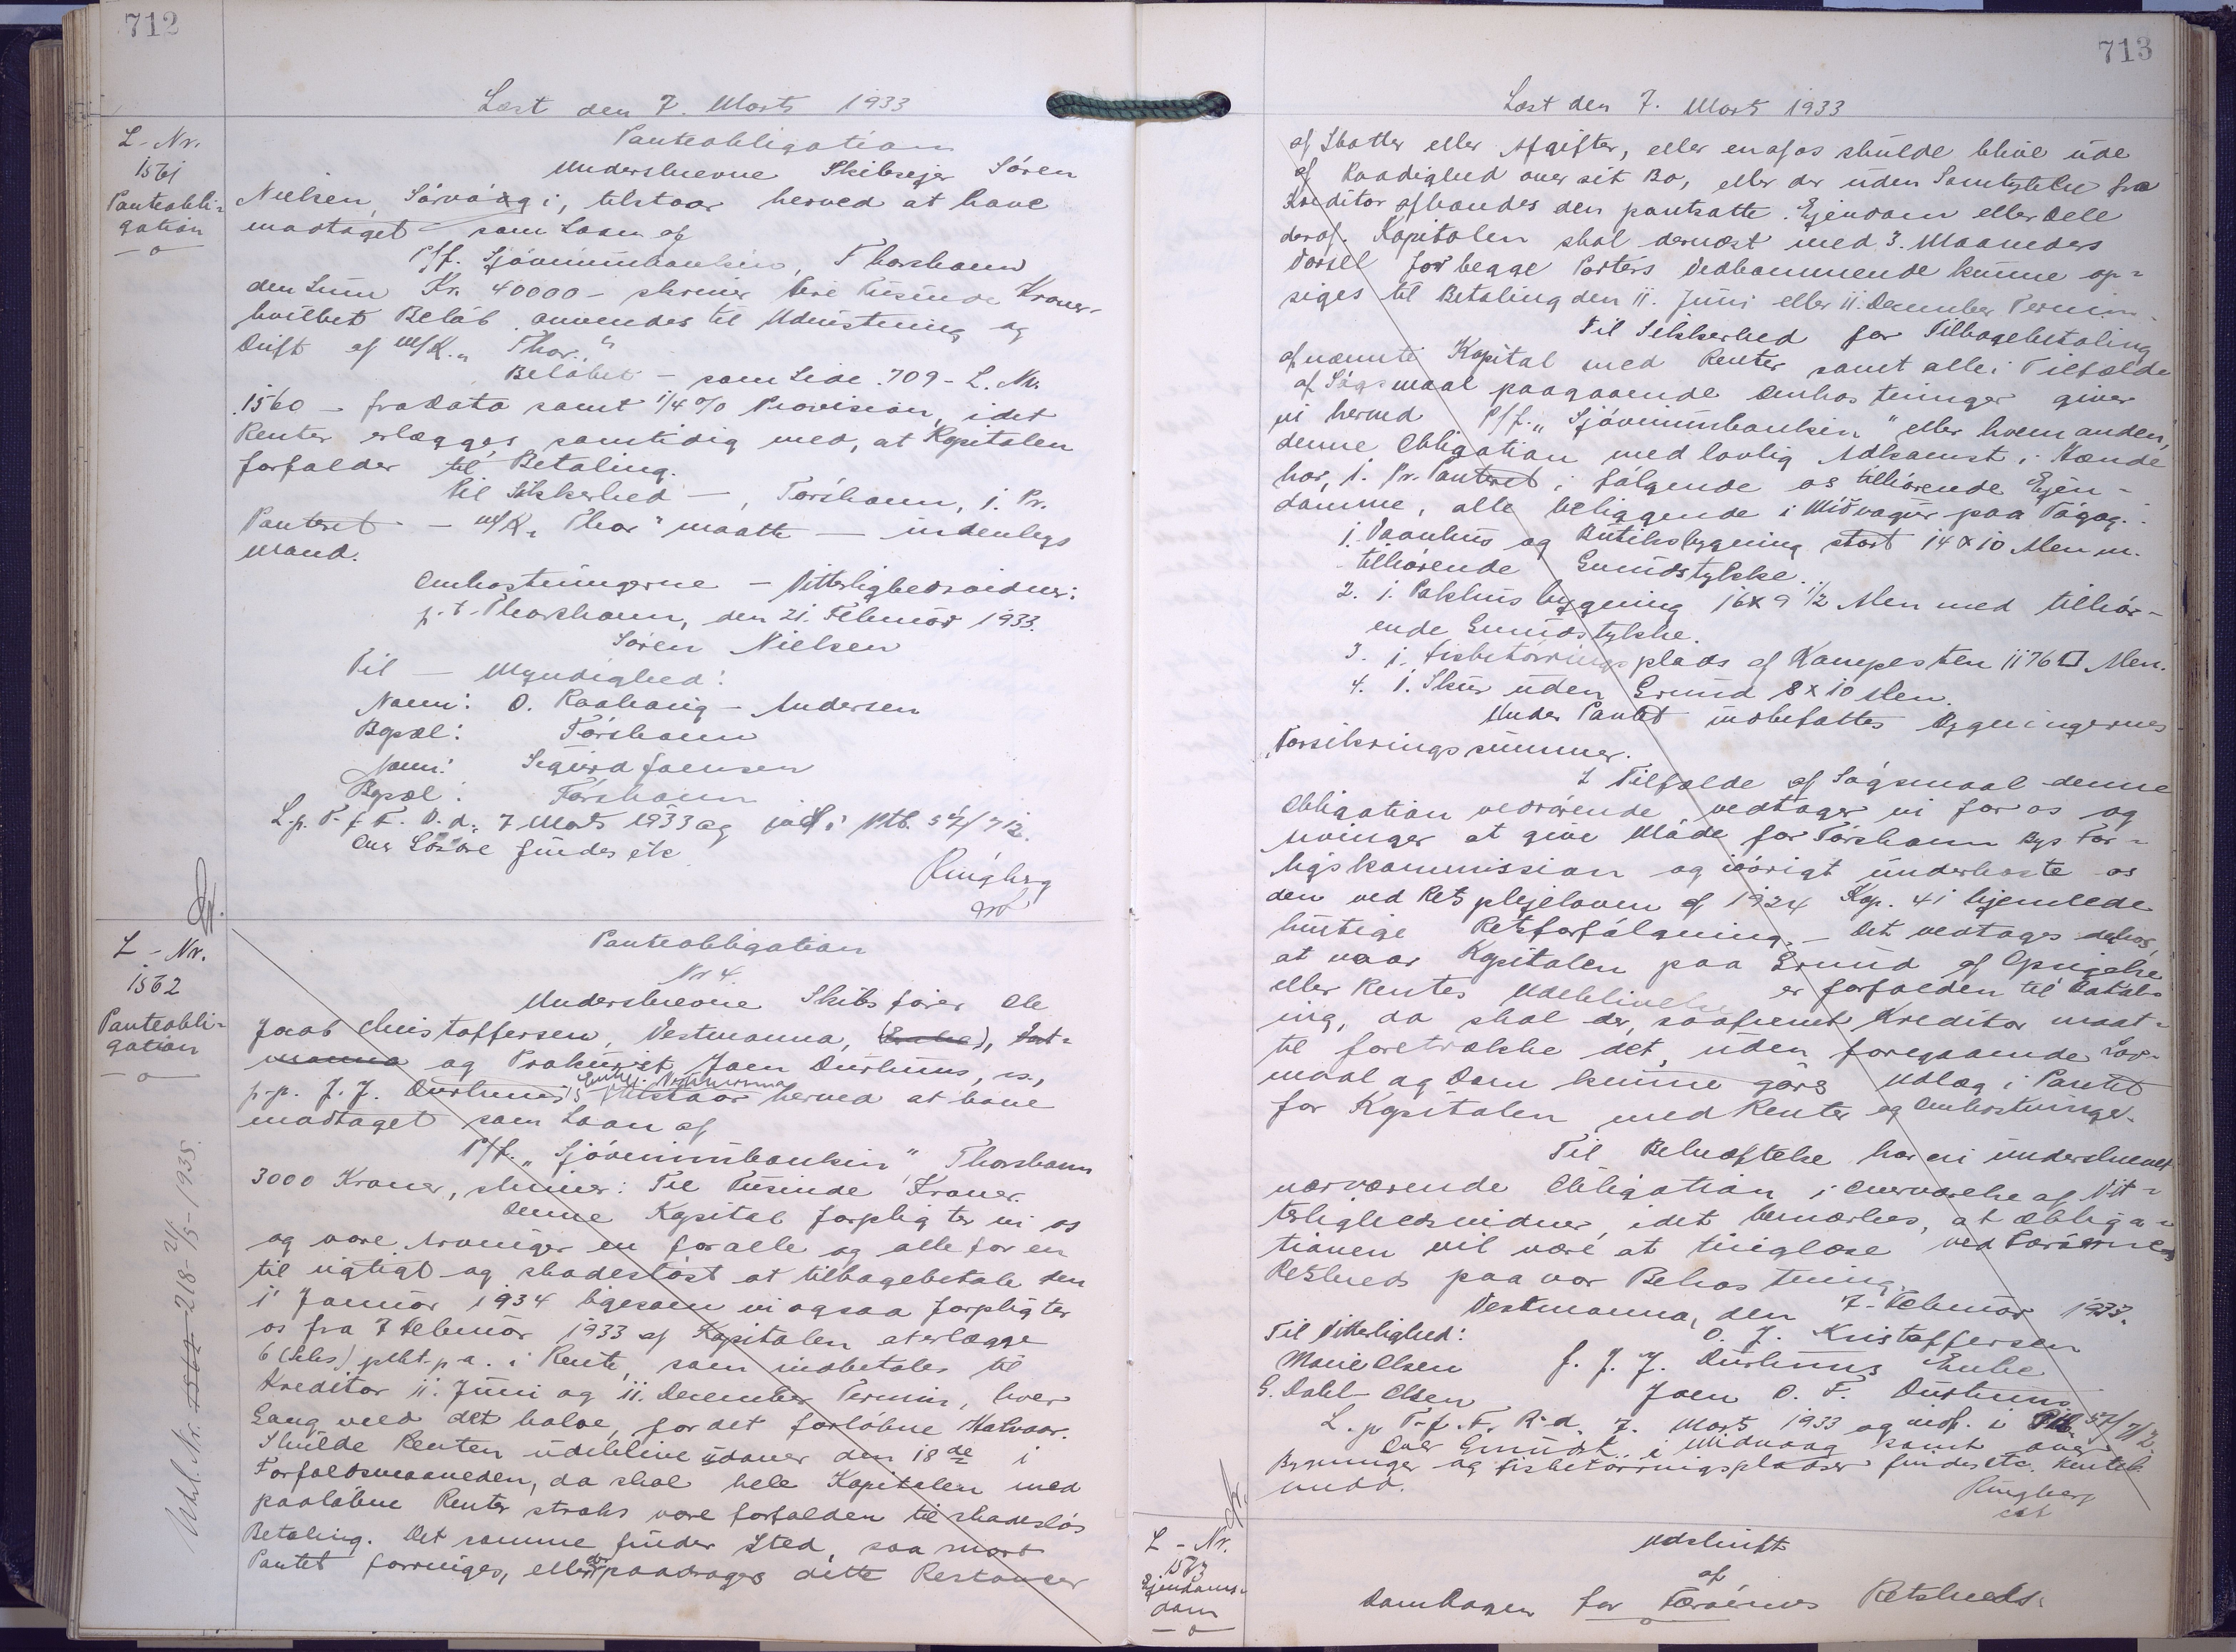 712
Læst den 7. Marts 1933
L-Nr.
1561
Panteobli-
gation
Panteobligation
Underskrevne Skibsejer Sören
Nielsen, Sörvaagi, tilstaar herved at have
modtaget som Laan af
P/f. Sjóvinnubankin, Thorshavn
den Sum Kr. 40000 - skriver Fire Tusinde Kroner-
hvilket Beløb anvendes til Udrustning og
Drift af M/K. "Thor".
Beløbet - som Side 709 - L. Nr.
1560 - fra Dato samt 1/4 % Provision, idet
Renter erlægges samtidig med, at Kapitalen
forfalder til Betaling.
Til Sikkerhed - , Tórshavn, 1. Pr.
Panteret - M/K. "Thor" maatte - indenlygs
Mand.
Omkostningerne - Vitterlighedsvidner:
p.t. Thorshavn, den 21. Februar 1933.
Sören Nielsen
Til - Myndighed:
Navn: O. Raahauig - Andersen
Bopæl: Tórshavn
Navn: Sigurd Joensen
Bopæl: Tórshavn
L. p. T. f. F. R. d. 7 Marts 1933 og indf. i Ptb. 57/712.
Over Løsøre findes etc
Ringberg
cst
L-Nr.
1562
Panteobli-
gation
Udsl. Nr. 1562 218-21/5-1935.
Panteobligation
Nr 4.
Underskrevne Skibsfører Ole
Jacob Christoffersen, Vestmanna, (Enke), Vest-
manna og Prokurist Joen Durhuus, s.,
p.p. J. J. Durhuus's Enke, Vestmanna tilstaar herved at have
modtaget som Laan af
P/f. "Sjóvinnubankin", Thorshavn
3000 Kroner, skriver: Tre Tusinde Kroner.
Denne Kapital forpligter vi os
og vore Arvinger en for alle og alle for en
til rigtigt og skadesløst at tilbagebetale den
1' Januar 1934 ligesom vi ogsaa forpligter
os fra 7 Februar 1933 af Kapitalen at erlægge
6 (Seks) pCt. p.a. i Rente, som indbetales til
Kreditor 11. Juni og 11. December Termin, hver
Gang med det halve, for det forløbne Halvaar.
Skulde Renten udeblive udover den 18de i
Forfaldsmaaneden, da skal hele Kapitalen med
paaløbne Renter straks være forfalden til skadesløs
Betaling. Det samme finder Sted, saa snart
Pantet forringes, eller der paadrages dette Restancer
713
Læst den 7. Marts 1933
af Skatter eller Afgifter, eller en af os skulde blive ude
af Raadighed over sit Bo, eller der uden Samtykke fra
Kreditor afhændes den pantsatte Ejendom eller Dele
deraf. Kapitalen skal dernæst med 3. Maaneders
Varsel for begge Parters Vedkommende kunne op-
siges til Betaling den 11. Juni eller 11. December Termin.
Til Sikkerhed for Tilbagebetaling
af nævnte Kapital med Renter samt alle i Tilfælde
af Søgsmaal paagaaende Omkostninger giver
vi herved P/f. "Sjóvinnubankin" eller hvem anden,
denne Obligation med lovlig Adkomst i Hænde
har, 1. Pr. Panteret i følgende os tilhørende Ejen-
domme, alle beliggende i Miðvagur paa Vágoy:
1. Vaanhus og Butiksbygning stort 14 x 10 Alen m.
tilhørende Grundstykke.
2. 1. Pakhusbygning 16 x 9 1/2 Alen med tilhør-
ende Grundstykke.
3. 1. Fisketørringsplads af Kampesten 1176 □ Alen.
4. 1. Skur uden Grund 8 x 10 Alen.
Under Pantet indbefattes Bygningernes
Forsikringssummer.
I Tilfælde af Søgsmaal denne
Obligation vedrørende vedtager vi for os og
Arvinger at give Møde for Tórshavn Bys For-
ligskommission og iøvrigt underkaste os
den ved Retsplejeloven af 1924 Kap. 41 hjemlede
hurtige Retsforfølgning. - Det vedtages derhos,
at naar Kapitalen paa Grund af Opsigelse
eller Rentes Udeblivelse er forfalden til Betal-
ing, da skal der, saafremt Kreditor maat-
te foretrække det, uden foregaaende Lov-
maal og Dom kunne gøres Udlæg i Pantet
for Kapitalen med Renter og Omkostninger.
Til Bekræftelse har vi underskrevet
nærværende Obligation i Overværelse af Vit-
terlighedsvidner, idet bemærkes, at Obliga-
tionen vil være at tinglæse ved Færøernes
Retskreds paa vor Bekostning.
Vestmanna, den 7. Februar 1933.
Til Vitterlighed: O. J. Kristoffersen
Marie Olsen f. J. J. Durhuus Enke
G. Dahl-Olsen Joen O. F. Durhuus
L. p. T. f. F. R. d. 7. Marts 1933 og indf. i Ptb. 57/712.
Over Grundst. i Midvaag samt over
Bygninger og Fisketørringspladser findes etc. Rentek.
undd.
Ringberg
cst
L-Nr.
1563
Ejendoms-
dom
Udskrift
af
Dombogen for Færøernes Retskreds.